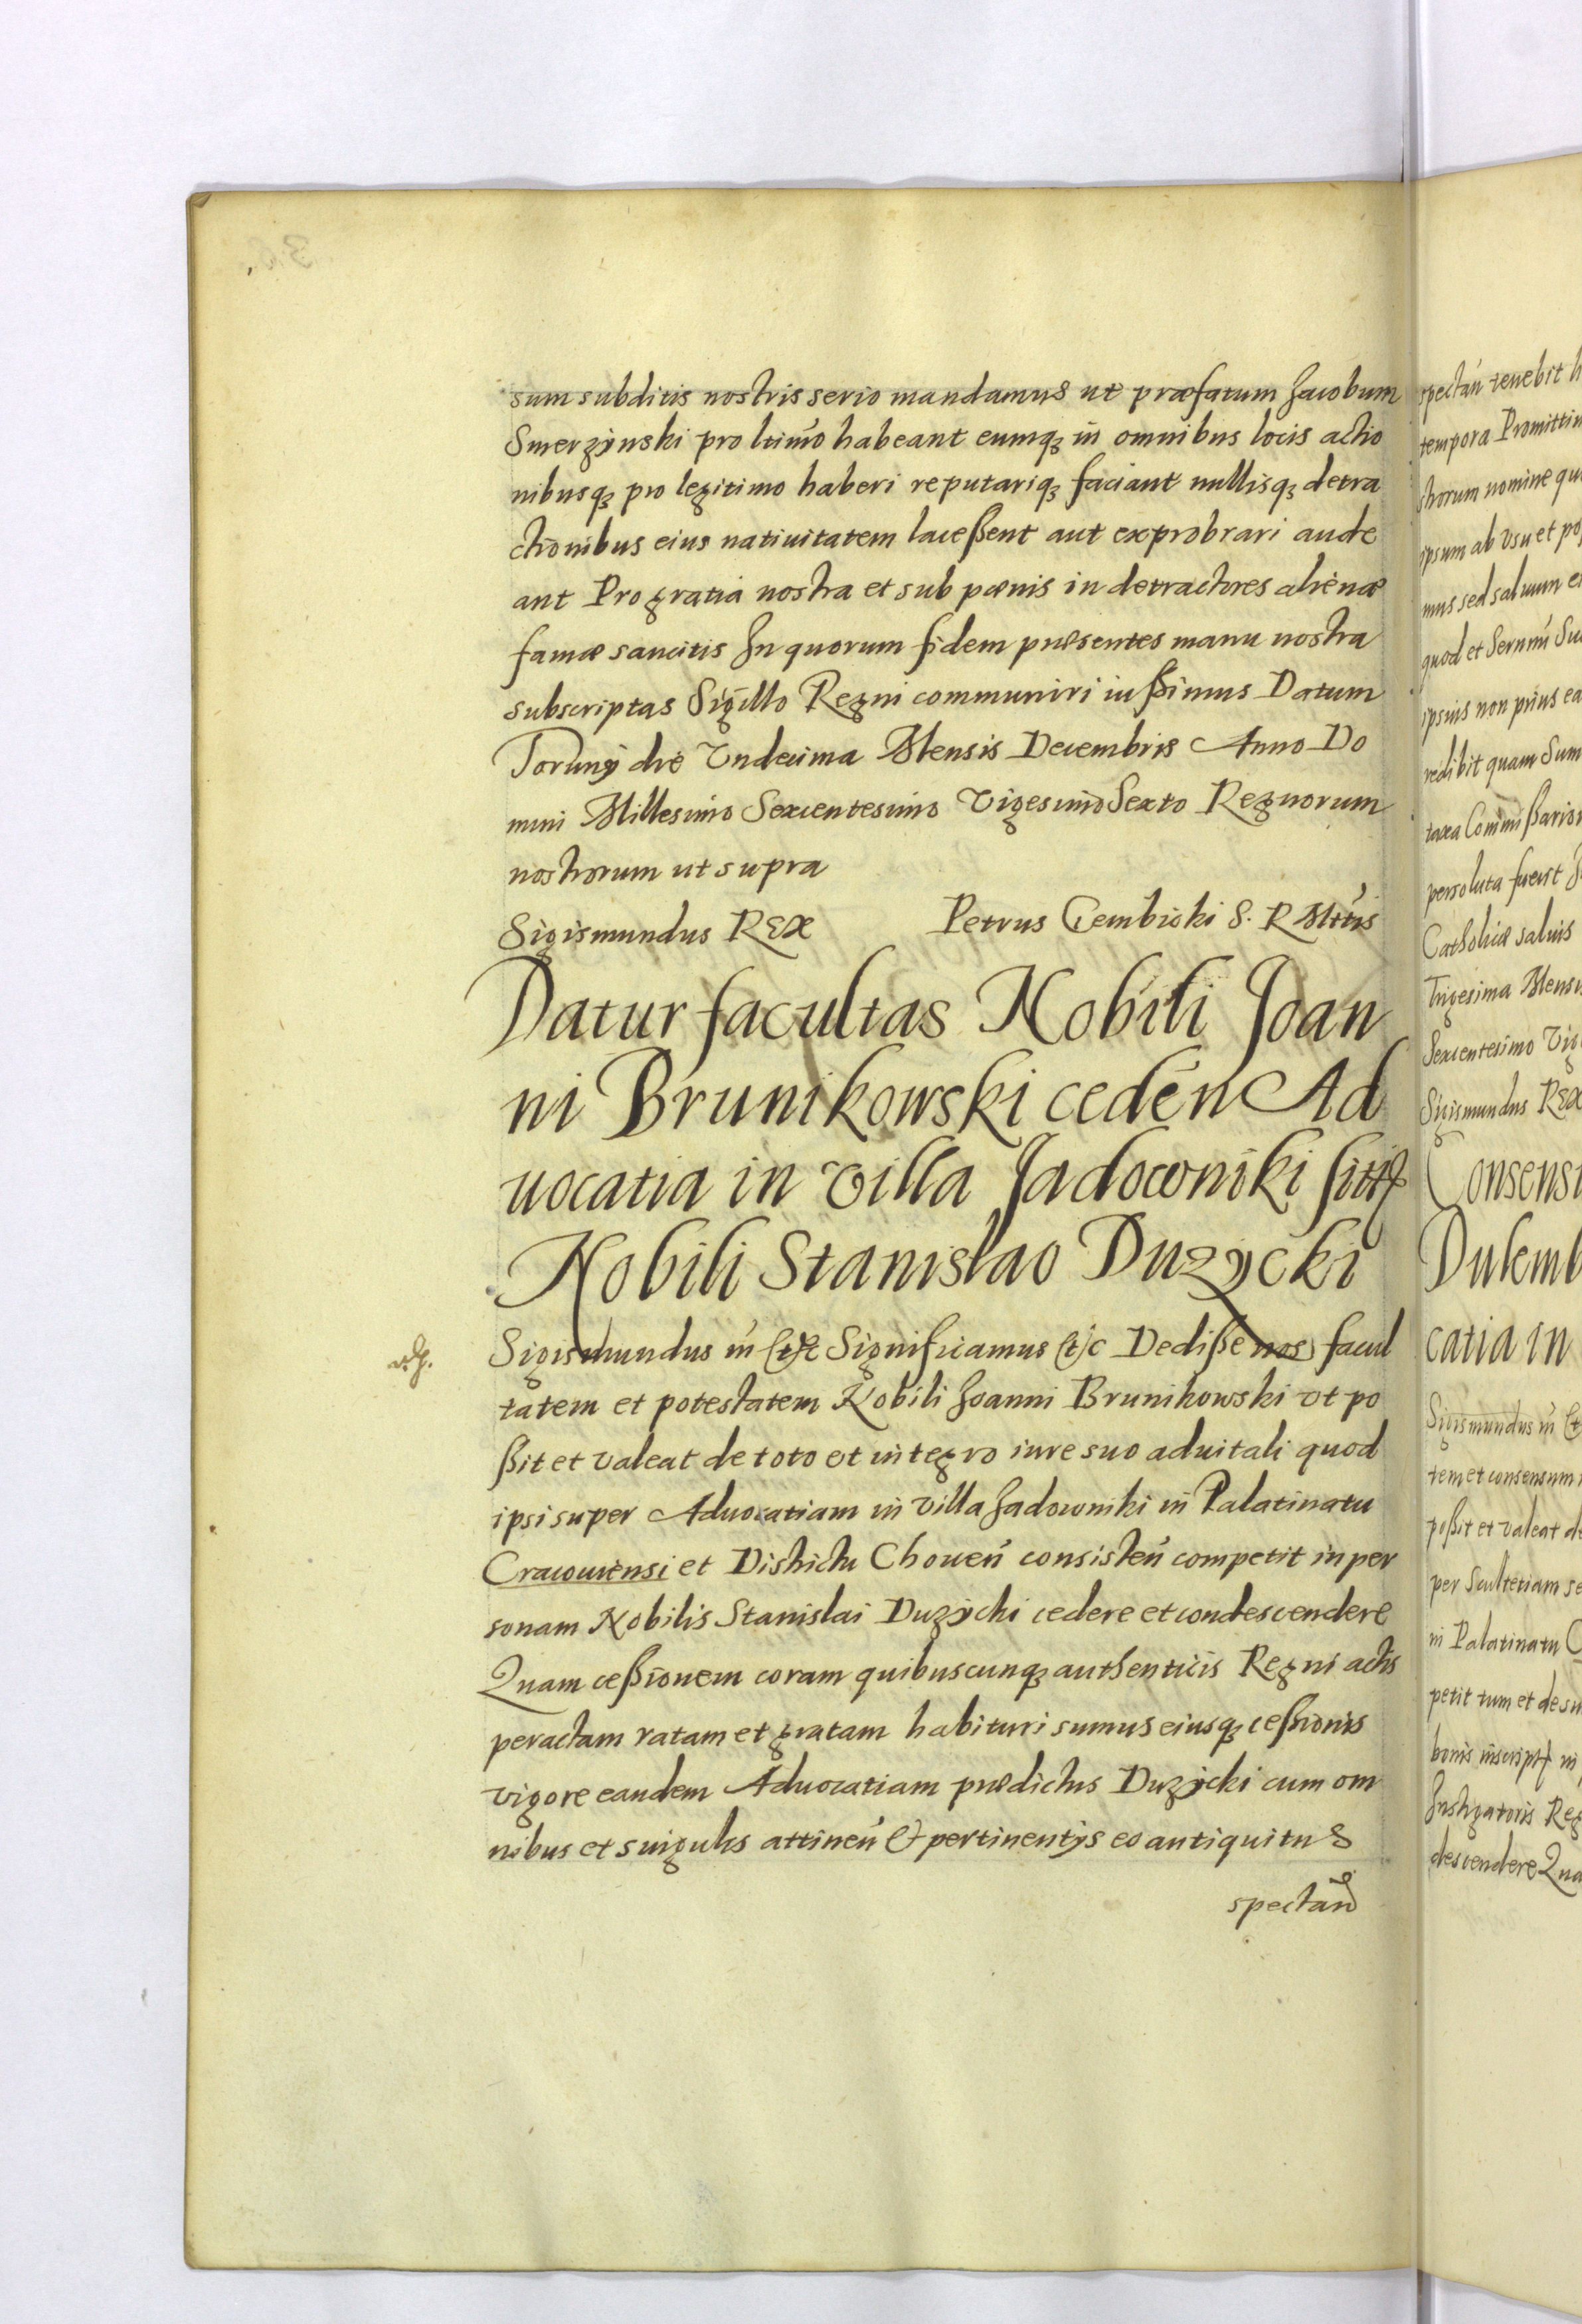 sum subditis nostris serio mandamus ut præfatum Jacobum
Smerzynski pro ltimo habeant eumq; in omnibus locis actio
nibusq; pro legitimo haberi reputariq; faciant nullisq; detra
ctionibus eius natiuitatem lacessent aut exprobrari aude
ant Pro gratia nostra et sub pœnis in detractores alienæ
famæ sancitis In quorum fidem præsentes manu nostra
subscriptas Sigillo Regni communiri iussimus Datum
Toruny die Vndecima Mensis Decembris Anno Do
mini Millesimo Sexcentesimo Vigesimo Sexto Regnorum
nostrorum ut supra
Sigismundus REX Petrus Gembicki S. R Mttis
Datur facultas Nobili Joan
ni Brunikowski ceden Ad
uocatia in villa Jadowniki
Nobili Stanislao Duzycki
Sigismundus in etc Significamus etc Dedisse nos facul
tatem et potestatem Nobili Joanni Brunikowski vt po
ssit et valeat de toto et integro iure suo aduitali quod
ipsi super Aduocatiam in villa Jadowniki in Palatinatu
Cracouiensi et Districtu Chouen consisten competit in per
sonam Nobilis Stanislai Duzycki cedere et condescendere
Quam cessionem coram quibuscunq; authenticis Regni actis
peractam ratam et gratam habituri sumus eiusq; cessionis
vigore eandem Aduocatiam prædictus Duzycki cum om
nibus et singulis attinen & pertinentijs eo antiquitus
spectan
spectan tenebit
tempora
strorum nomine
ipsum ab vsu et
mus sed saluum
quod et
ipsius non prius
redibit quam
taxa
persoluta fuerit
Catholicæ saluis
Trigesima
Sexcentesimo
Sigismundus REX
catia in
Sigismundus in
tem et consensum
possit et valeat
per Scultetiam
in Palatinatu
petit tum et de
bonis
Instigatoris
descendere